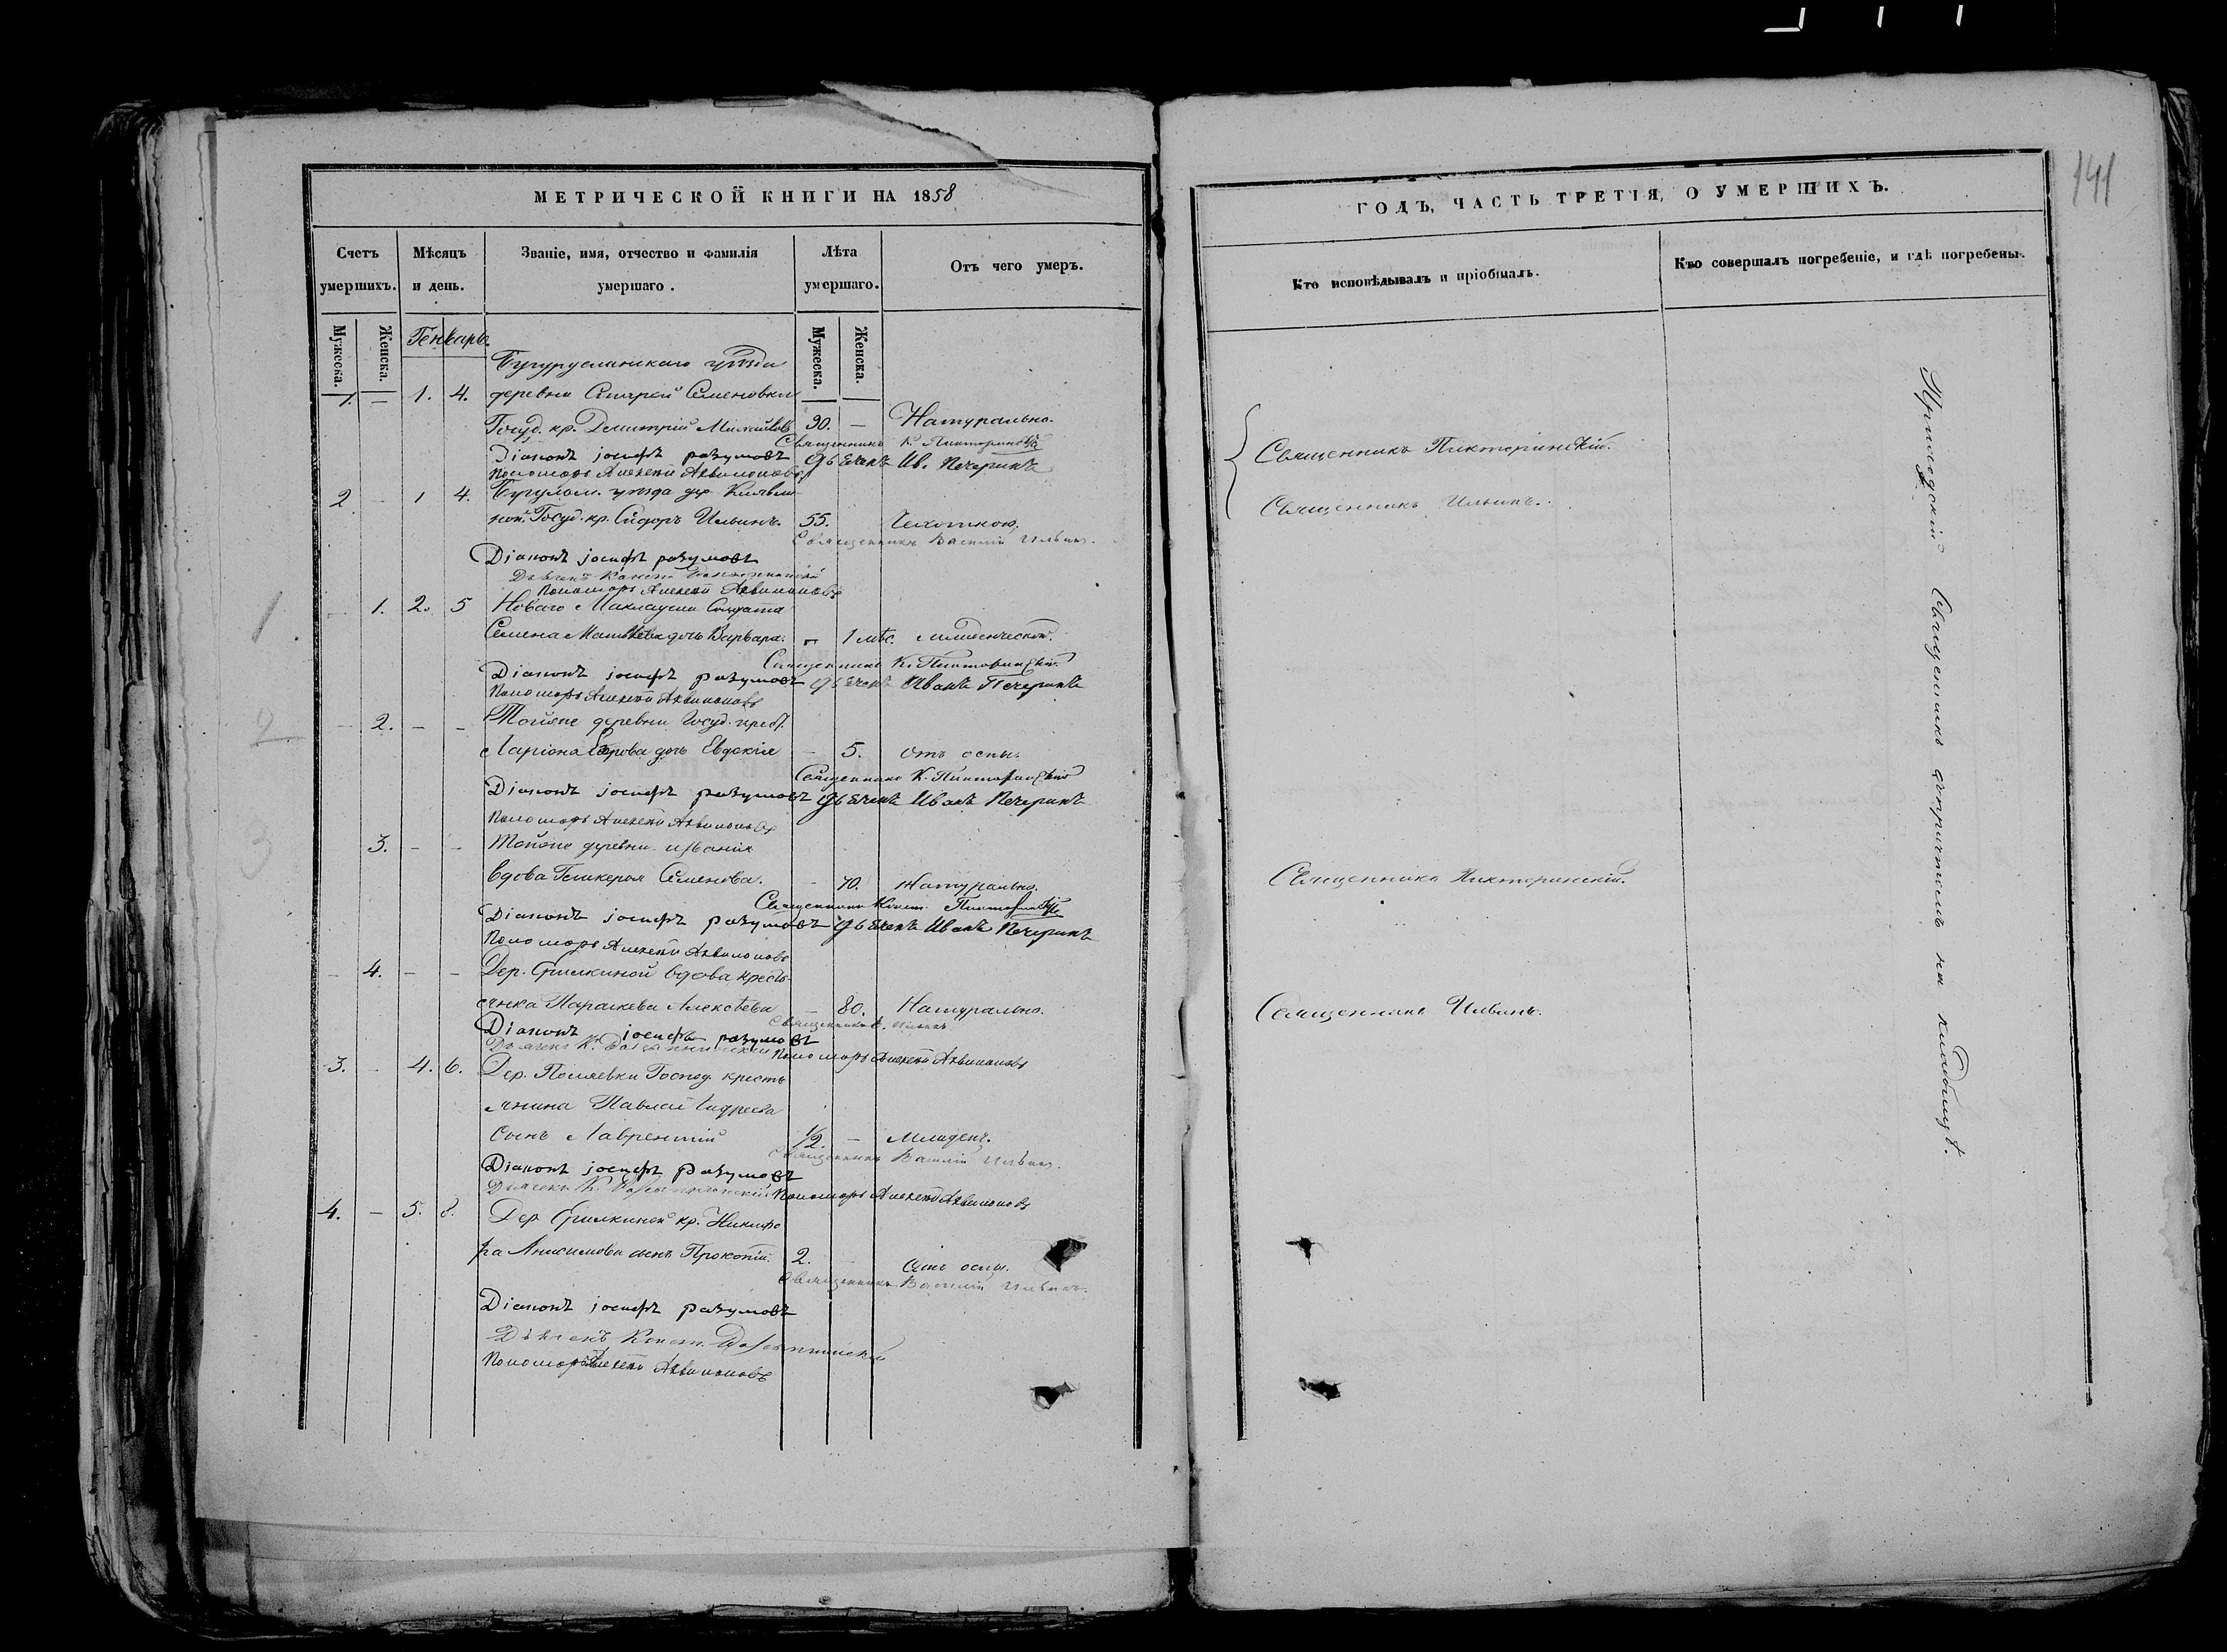 МЕТРИЧЕСКОЙ КНИГИ НА 1858
Счетъ умершихъ.
Мѣсяцъ и день.
Званіе, имя, отчество и фамилія умершаго.
Лѣта умершаго.
Отъ чего умеръ.
Мужеска.
Женска.
Мужеска.
Женска.
Генварь.
Бугурусланскаго уѣзда
1. — 1. 4. деревни Старой Семеновки
Госуд. кр. Димитрій Михайловъ 90. — Натурально.
Священникъ К. Пикторинскій
Діаконъ іосифъ разумовъ дьячекъ Ив. Печеринъ
Пономарь Алексѣй Аквилоновъ
2 — 1 4. Бугульм. уѣзда дер.
Госуд. кр. Сидоръ Ильинъ. 55. Чахоткою.
Священникъ Василій Ильинъ.
Діаконъ іосифъ разумовъ
Дьячекъ Конст.
Пономарь Алексѣй Аквилоновъ
— 1. 2. 5 Новаго Маклауша Солдата
Семена Матвѣева дочь Варвара. — 1 мѣс. младенческой.
Священникъ К. Пикторинскій
Діаконъ іосифъ разумовъ дьячекъ Иванъ Печеринъ
Пономарь Алексѣй Аквилоновъ
— 2. — — Тойже деревни Госуд. крест.
Ларіона дочь Евдокія — 5. Отъ оспы.
Священникъ К. Пикторинскій
Діаконъ іосифъ разумовъ дьячекъ Иванъ Печеринъ
Пономарь Алексѣй Аквилоновъ
3. — — Тойже деревни званія
вдова Гликерія Семенова. — 70. Натурально.
Священникъ Конст. Пикторинскій
Діаконъ іосифъ разумовъ дьячекъ Иванъ Печеринъ
Пономарь Алексѣй Аквилоновъ
— 4. — — Дер. Ерилкиной вдова кресть
янка Параскева Алексѣева — 80. Натурально.
Священникъ В. Ильинъ
Діаконъ іосифъ разумовъ
Дьячекъ К.
Пономарь Алексѣй Аквилоновъ
3. — 4. 6. Дер. Поляевки Господ. кресть
янина Павла Андреева
сынъ Лаврентій 1/2. — Младенч.
Священникъ Василій Ильинъ.
Діаконъ іосифъ разумовъ
Дьячекъ К.
Пономарь Алексѣй Аквилоновъ
4. — 5. 8. Дер. Ерилкиной кр. Никифо
ра Анисимова сынъ Прокопій. 2. — Отъ оспы.
Священникъ Василій Ильинъ.
Діаконъ іосифъ разумовъ
Дьячекъ Конст.
Пономарь Алексѣй Аквилоновъ
1.
2
3
141
ГОДЪ, ЧАСТЬ ТРЕТІЯ, О УМЕРШИХЪ.
Кто исповѣдывалъ и пріобщалъ.
Кто совершалъ погребеніе, и гдѣ погребены.
Священникъ Пикторинскій.
Священникъ Ильинъ.
Священникъ Пикторинскій.
Священникъ Ильинъ.
Приходскій Священникъ съ причтомъ на кладбищѣ.